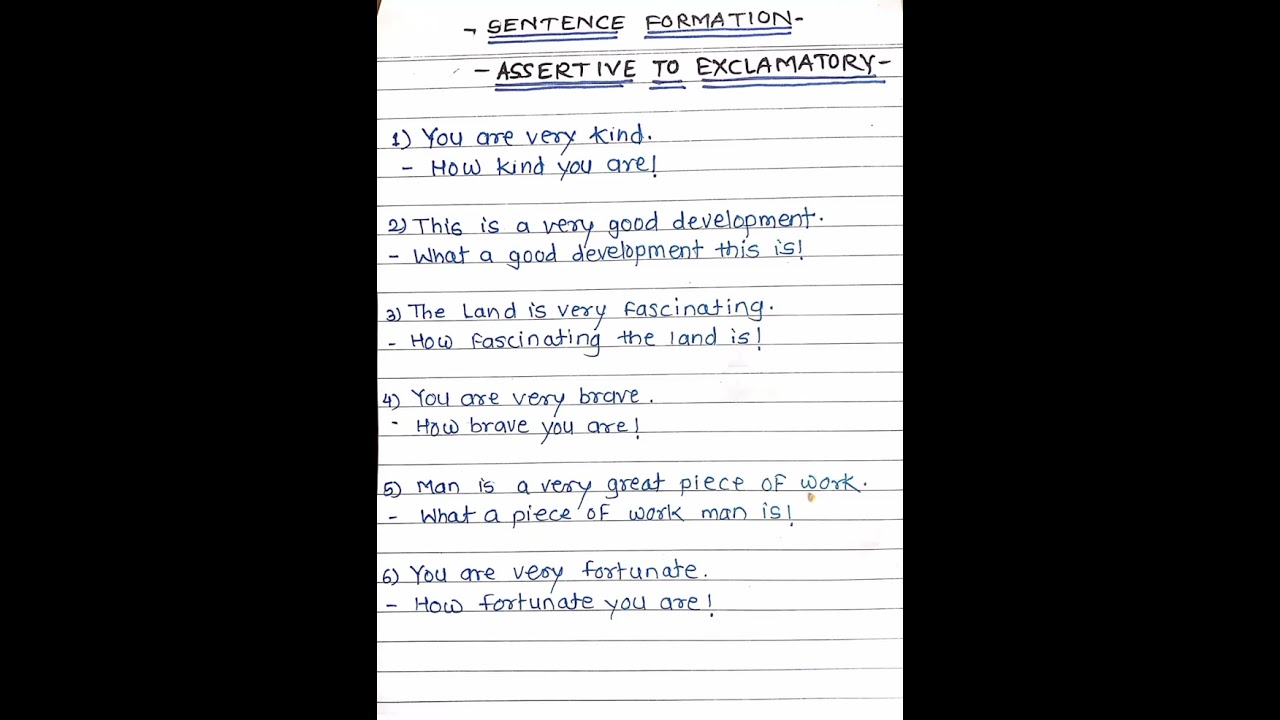 - SENTENCE FORMATION-
- ASSERTIVE TO EXCLAMATORY-
1) You are very kind.
- How kind you are!
2) This is a very good development.
- What a good development this is!
3) The Land is very fascinating.
- How fascinating the land is!
4) You are very brave.
- How brave you are!
5) Man is a very great piece of work.
- What a piece of work man is!
6) You are very fortunate.
- How fortunate you are!